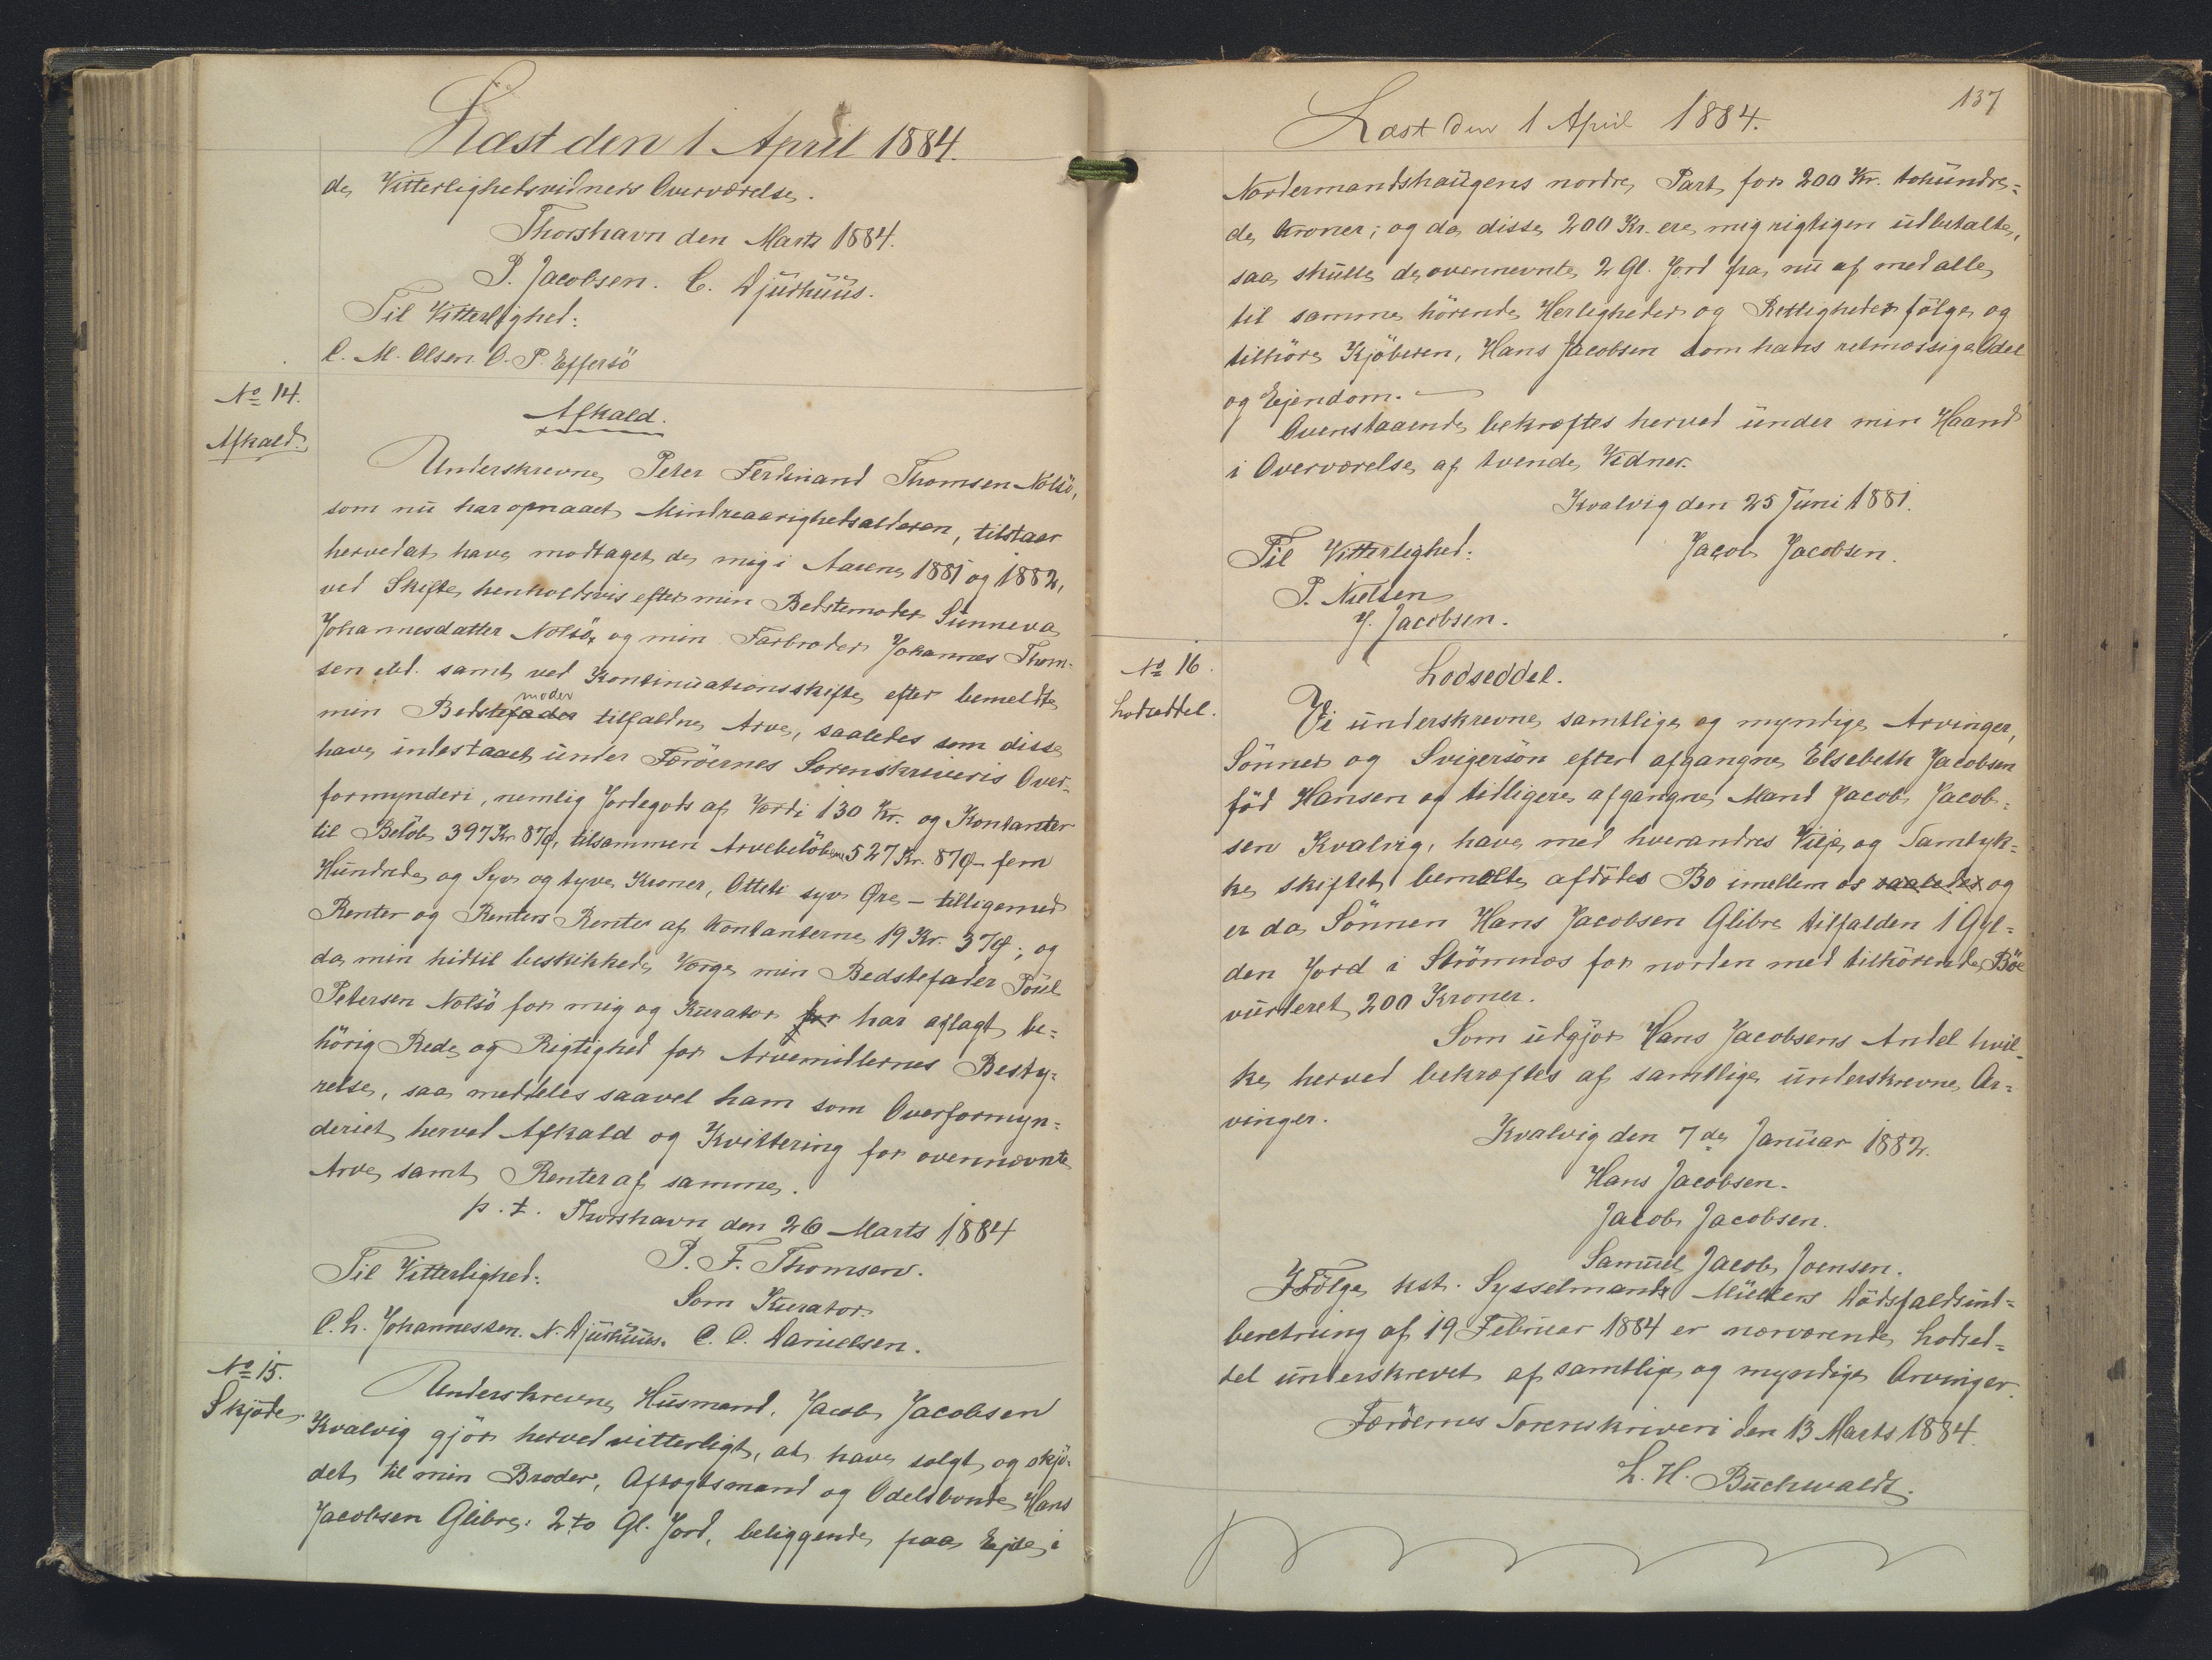 Læst den 1 April 1884.
de Vitterlighedsvidners Overværelse.
Thorshavn den Marts 1884.
P. Jacobsen. C. Djurhuus.
Til Vitterlighed:
C. M. Olsen. O. P. Effersö
No 14.
Afkald.
Afkald.
Underskrevne Peter Ferdinand Thomsen Nolsö,
som nu har opnaaet Mindreaarighedsalderen, tilstaar
hervedat have modtaget de mig i Aarene 1881 og 1882,
ved Skifte henholdsvis efter min Bedstemoder Sunneva
Johannesdatter Nolsö, og min Farbroder Johannes Thom-
sen ibd. samt ved Kontinuationsskifte efter bemeldte
moder
min Bedstefader tilfaldne Arve, saaledes som disse
have indestaaet under Færöernes Sorenskriveris Over-
formynderi, nemlig Jordegods af Værdi 130 Kr. og Kontanter
til Belöb 397 Kr. 87 Ø, tilsammen Arvebelöbene 527 Kr. 87 Ø – fem
Hundrede og Syv og tyve Kroner, Otteti syv Øre – tilligemed
Renter og Renters Renter af Kontanterne 19 Kr. 37 Ø; og
da min hidtil beskikkede Værge min Bedstefader Poul
Petersen Nolsö for mig og Kurator for har aflagt be=
hörig Rede og Rigtighed for Arvemidlernes Besty=
relse, saa meddeles saavel ham som Overformyn=
deriet herved Afkald og Kvittering for ovennævnte
Arve samt Renter af samme.
p. t. Thorshavn den 26 Marts 1884
P. F. Thomsen.
Til Vitterlighed:
Som Kurator
C. L. Johannessen. N. Djurhuus. C. C. Danielsen.
No 15.
Skjöde.
Underskrevne Husmand, Jacob Jacobsen
Kvalvig gjör herved vitterligt, at have solgt og skjö-
det til min Broder, Aftægtsmand og Odelsbonde Hans
Jacobsen Glibre: 2 to Gl. Jord, beliggende paa Ejde i
137
Læst den 1 April 1884.
Nordermandshaugens nordre Part for 200 Kr. tohundre=
de Kroner; og da disse 200 Kr. ere mig rigtigen udbetalte,
saa skulle de ovennevnte 2 Gl. Jord fra nu af med alle
til samme hörende Herligheder og Rettigheder fölge og
tilhöre Kjöberen, Hans Jacobsen som hans retmæssige Odel
og Ejendom. —
Ovenstaaende bekræftes herved under min Haand
i Overværelse af tvende Vidner.
Kvalvig den 25 Juni 1881.
Til Vitterlighed:
Jacob Jacobsen.
P. Nielsen
J. Jacobsen.
No 16.
Lodseddel.
Lodseddel.
Vi underskrevne samtlige og myndige Arvinger,
Sönner og Svigersön efter afgangne Elsebeth Jacobsen
föd Hansen og tidligere afgangne Mand Jacob Jacob=
sen Kvalvig, have med hverandres Vilje og Samtyk=
ke skiftet bemeldte afdödes Bo imellem os saaledes og
er da Sönnen Hans Jacobsen Glibre tilfalden 1 Gyl=
den Jord i Strömnæs for norden med tilhörende Böe
vurderet 200 Kroner.
Som udgjör Hans Jacobsens Andel hvil-
ke herved bekræftes af samtlige underskrevne Ar=
vinger.
Kvalvig den 7 de Januar 1882.
Hans Jacobsen.
Jacob Jacobsen.
Samuel Jacob Joensen.
Ifölge kst. Sysselmand Müllers Dödsfaldsind=
beretning af 19 Februar 1884 er nærværende Lodsed=
del underskrevet af samtlige og myndige Arvinger.
Færöernes Sorenskriveri den 13 Marts 1884.
L. H. Buchwaldt.